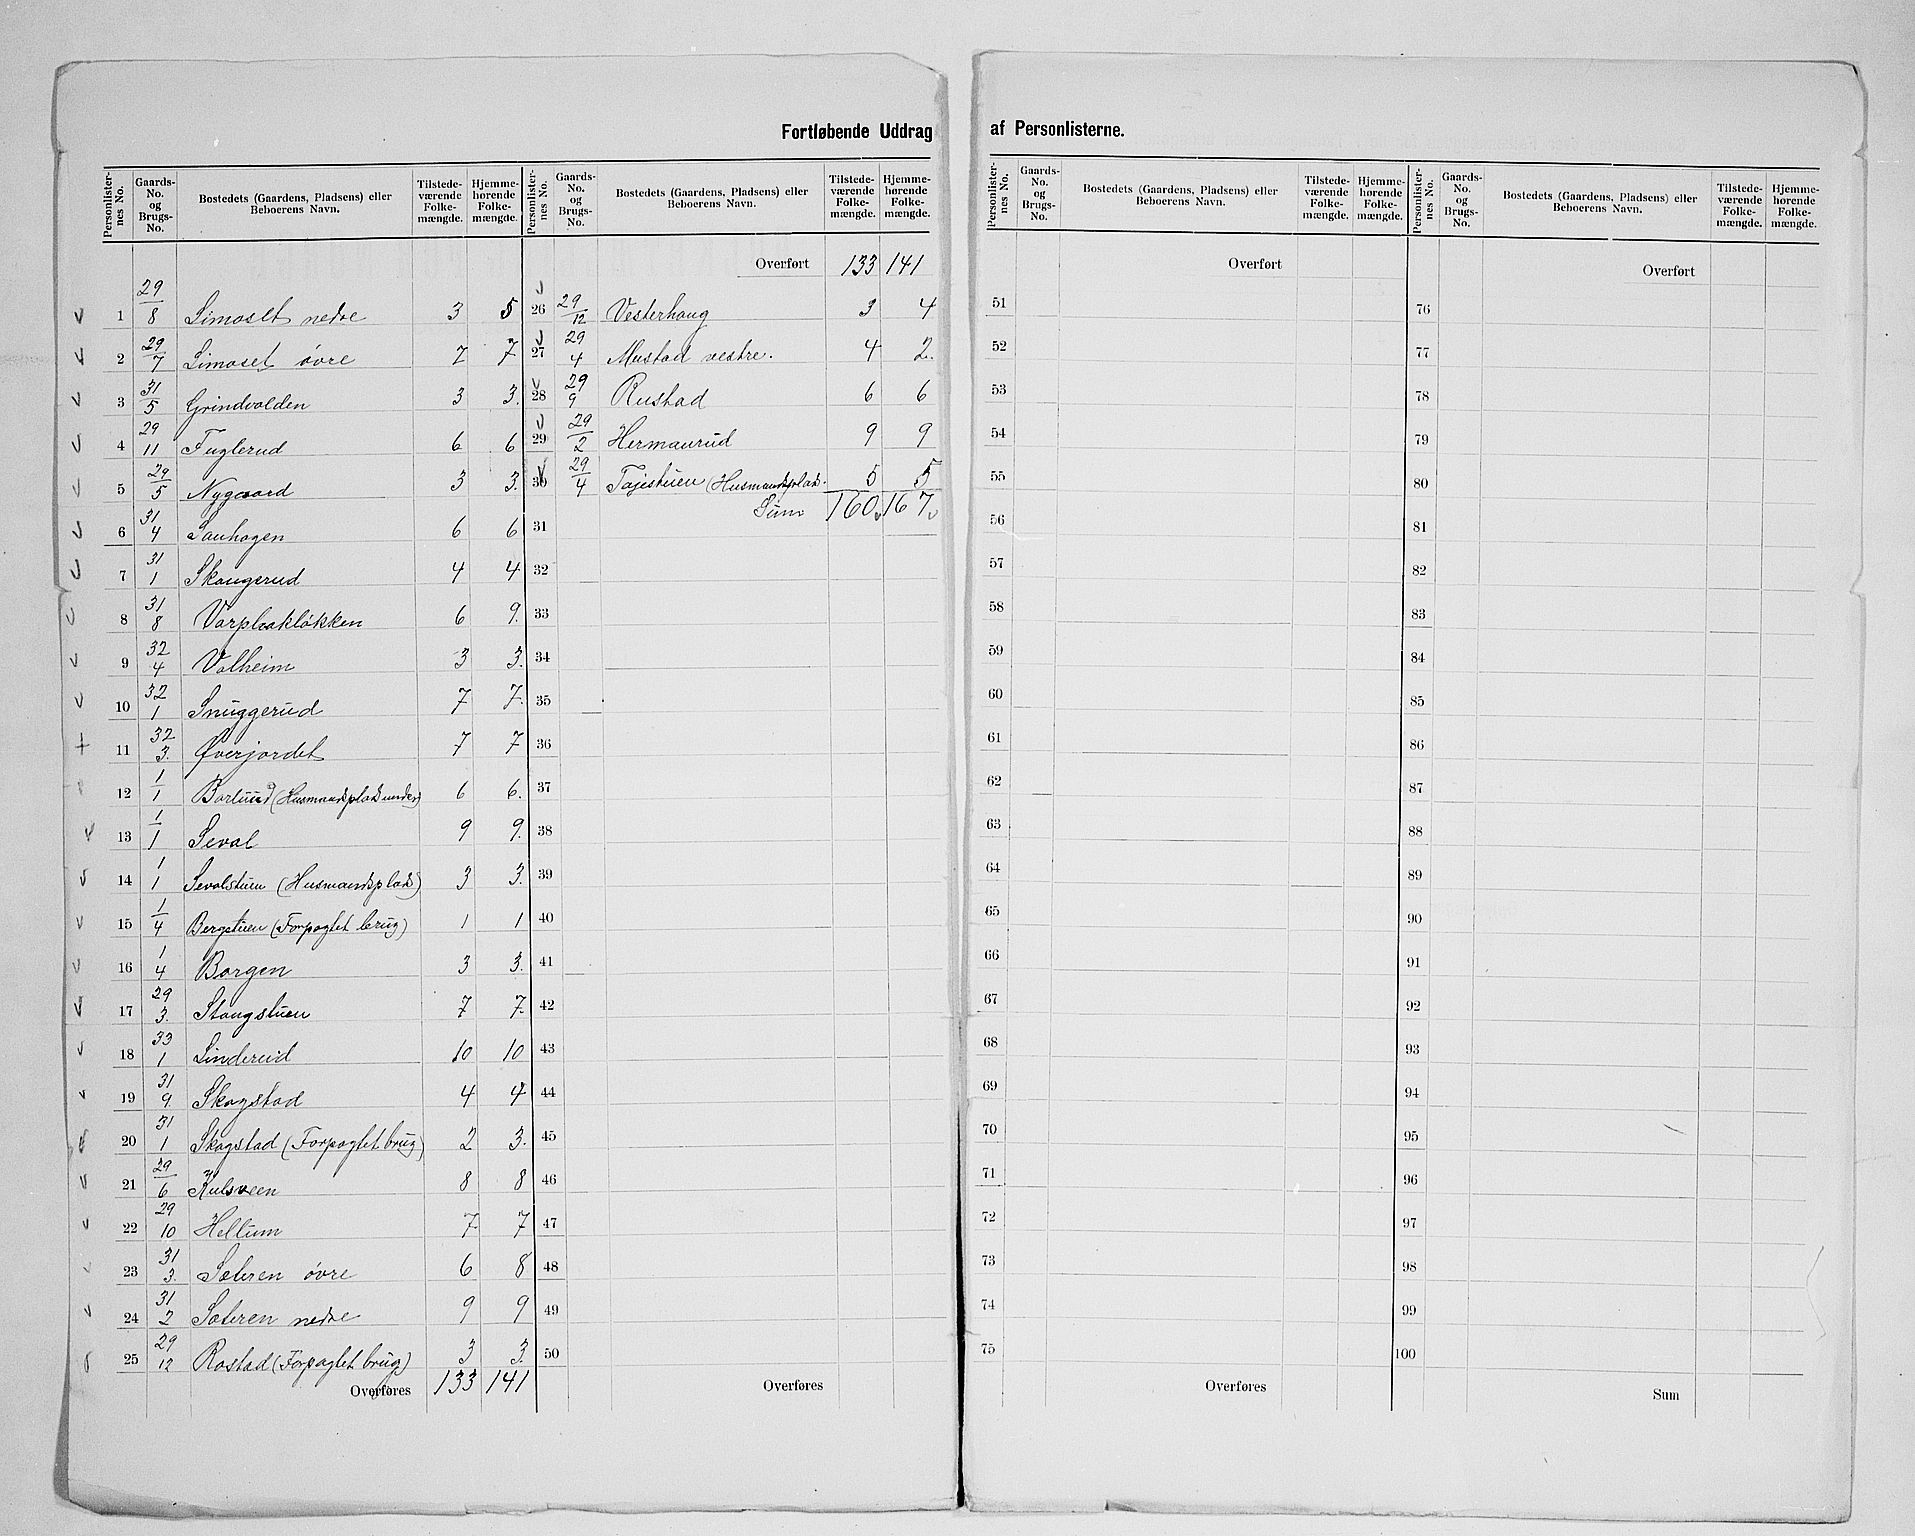 Fortløbende Uddrag af Personlisterne.
Personlister-nes No. | Gaards-No. og Brugs-No. | Bostedets (Gaardens, Pladsens) eller Beboerens Navn. | Tilstede-værende Folke-mængde. | Hjemme-hørende Folke-mængde.
1 29/8 Limoset nedre 3 5
2 29/7 Limoset øvre 7 7
3 31/5 Grindvolden 3 3.
4 29/11 Fuglerud 6 6
5 29/5 Nygaard 3 3.
6 31/4 Sauhagen 6 6
7 31/1 Skaugerud 4 4
8 31/8 Varplaakløkken 6 9.
9 32/4 Valheim 3 3.
10 32/1 Snuggerud 7 7.
11 32/3. Øverjordet 7 7
12 1/1 (Husmandsplads under) 6 6.
13 1/1 Seval 9 9.
14 1/1 Sevalstuen (Husmandsplads) 3 3.
15 1/4 Bergstuen (Forpagtet brug) 1 1
16 1/4 Borgen 3 3.
17 29/3. Stangstuen 7 7.
18 33/1 Linderud 10 10
19 31/9. Skogstad 4 4
20 31/1 Skogstad (Forpagtet brug) 2 3.
21 29/6 Kulsveen 8 8
22 29/10 Hellum 7 7
23 31/3. Sæteren øvre 6 8
24 31/2 Sæteren nedre 9 9
25 29/12 Rostad (Forpagtet brug) 3 3.
Overføres 133 141
Personlister-nes No. | Gaards-No. og Brugs-No. | Bostedets (Gaardens, Pladsens) eller Beboerens Navn. | Tilstede-værende Folke-mængde. | Hjemme-hørende Folke-mængde.
Overført 133 141
26 29/12 Vesterhaug 3 4
27 29/4 Mustad vestre. 4 2.
28 29/9 Rustad 6 6
29 29/2 Hermanrud 9 9
30 29/4 Tajestuen (Husmandsplads. 5 5
Sum 160 167
31
32
33
34
35
36
37
38
39
40
41
42
43
44
45
46
47
48
49
50
Overføres
Personlister-nes No. | Gaards-No. og Brugs-No. | Bostedets (Gaardens, Pladsens) eller Beboerens Navn. | Tilstede-værende Folke-mængde. | Hjemme-hørende Folke-mængde.
Overført
51
52
53
54
55
56
57
58
59
60
61
62
63
64
65
66
67
68
69
70
71
72
73
74
75
Overføres
Personlister-nes No. | Gaards-No. og Brugs-No. | Bostedets (Gaardens, Pladsens) eller Beboerens Navn. | Tilstede-værende Folke-mængde. | Hjemme-hørende Folke-mængde.
Overført
76
77
78
79
80
81
82
83
84
85
86
87
88
89
90
91
92
93
94
95
96
97
98
99
100
Sum